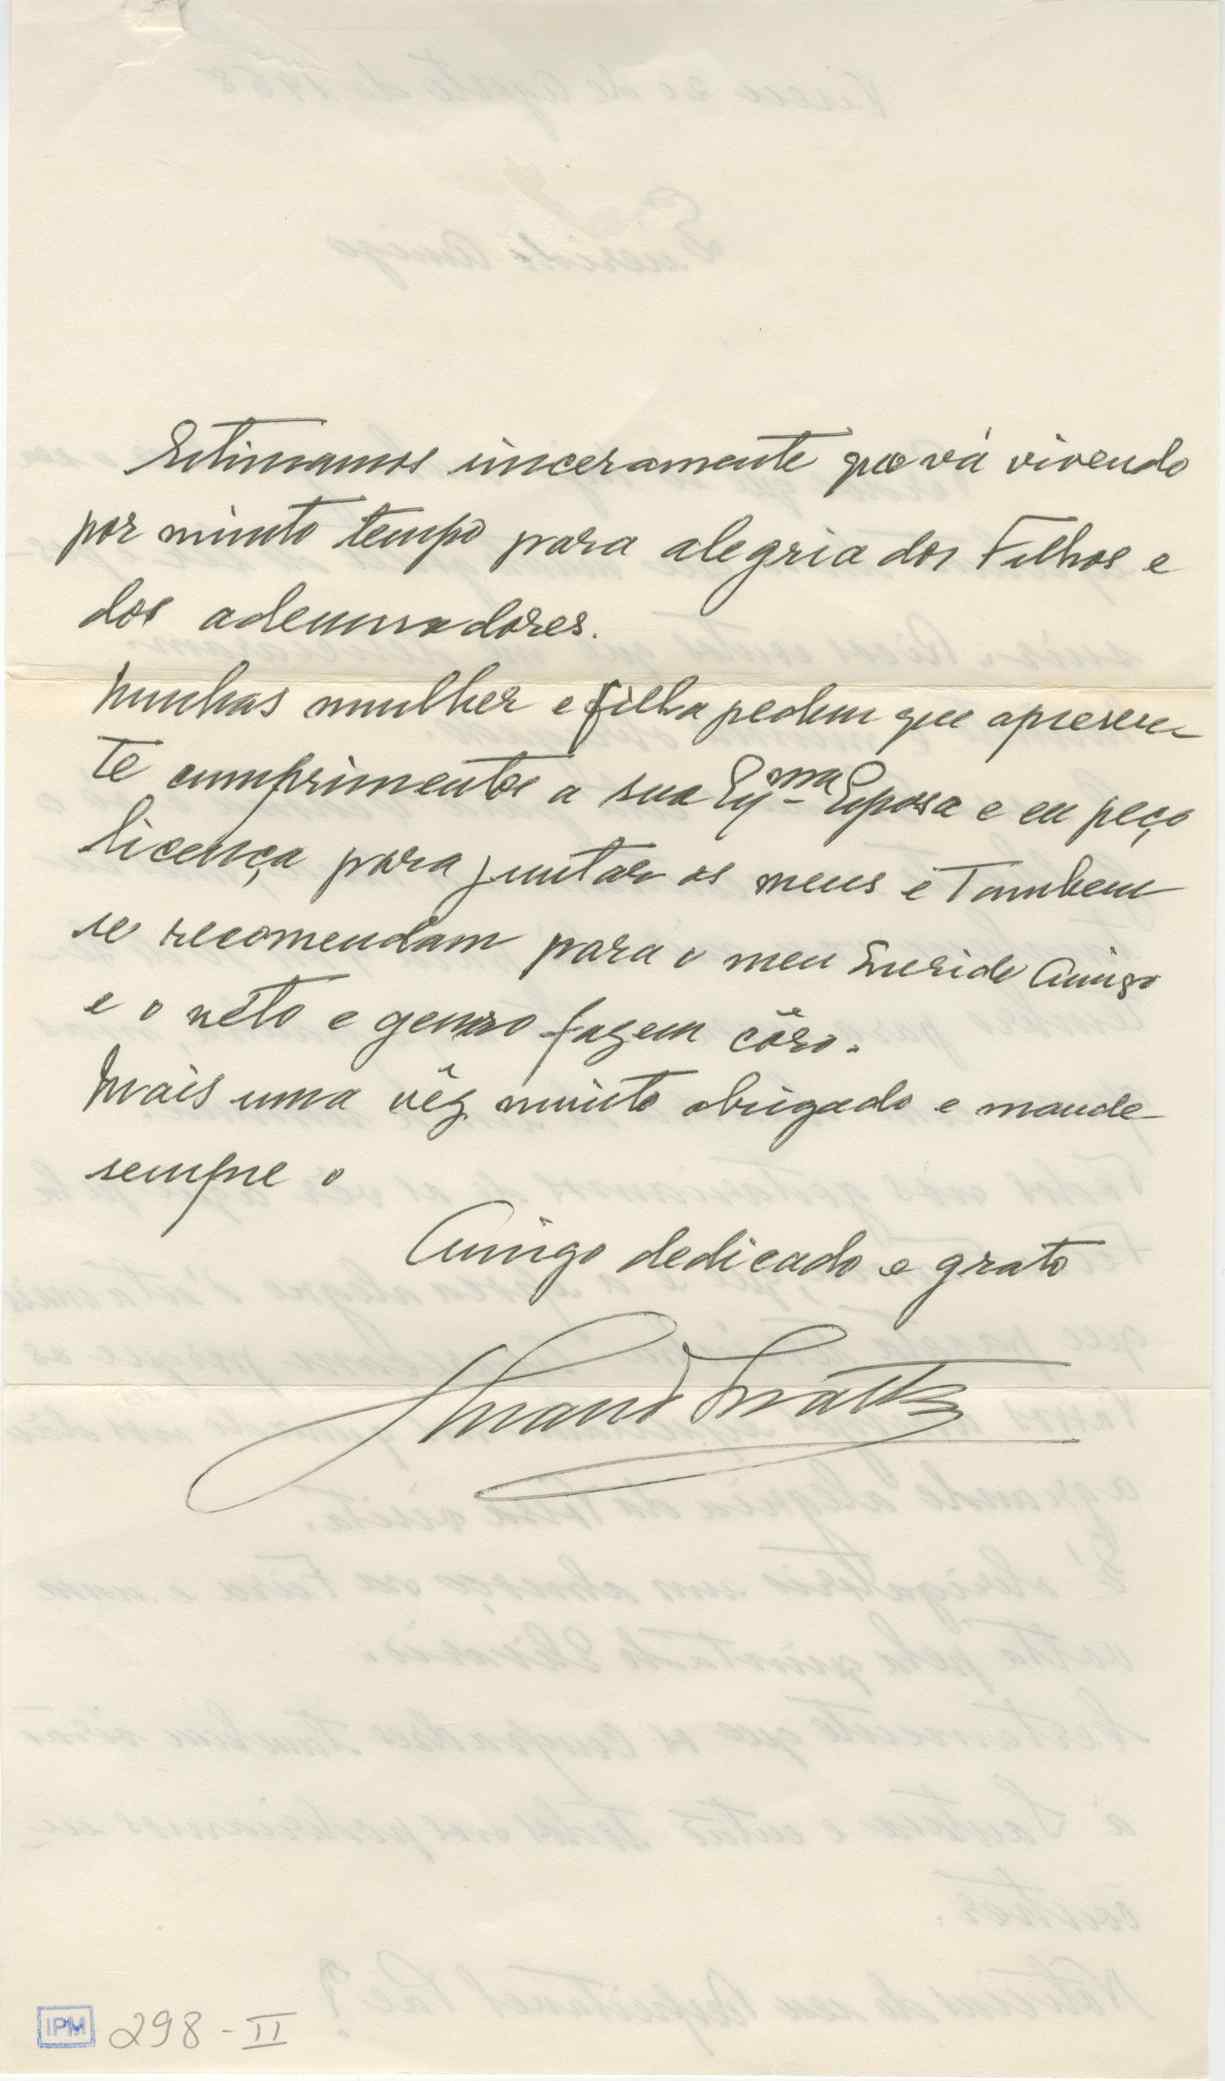 Estimamos sinceramente que vá vivendo
por muinto tempo para alegria dos Filhos e
dos ademiradores.
Minhas mulher e filha pedem que apresen-
te cumprimentos a sua Exma Esposa e eu peço
licença para juntar os meus e Tambem
se recomendam para o meu Querido Amigo
e o néto e genro fazem côro.
Mais uma vêz muinto obrigado e mande
sempre o
Amigo dedicado e grato
IPM 298-II